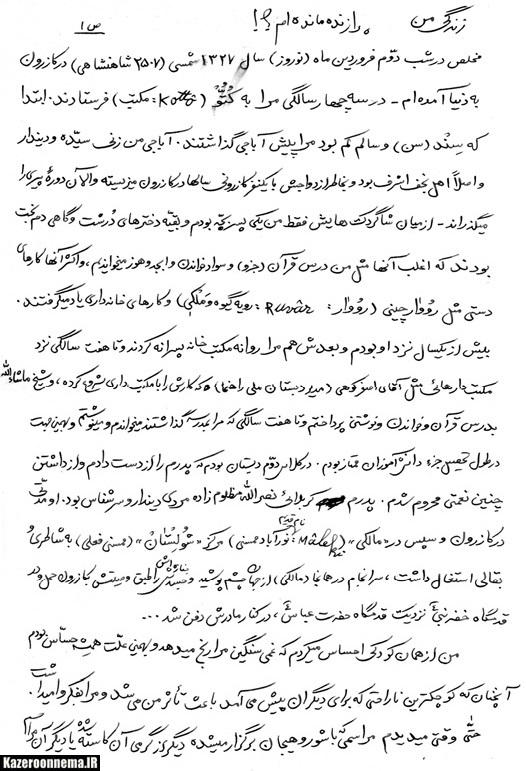 زندگی من چرا زنده مانده ام ؟! ص ۱
مخلص در شب دوّم فروردین ماه (نوروز) سال ۱۳۲۷ شمسی (۲۵۰۷ شاهنشاهی) در کازرون
به دنیا آمده ام - در سه چهار سالگی مرا به کُتّو (Kotto : مکتب) فرستادند. ابتدا
که سِنْد (سن) و سالم کم بود مرا پیش آباجی گذاشتند. آباجی من زنی سیّده و دیندار
و اصلاً اهل نجف اشرف بود و بخاطر ازدواجش با یکنفر کازرونی سالها در کازرون میزیسته والآن دورهٔ پیری را
میگذراند - از میان شاگردهایش فقط من یکی پسربچّه بودم و بقیّه دخترهای دُرشت و گاهی دم بخت
بودند که اغلب آنها مثل من درس قرآن (جزو) و سواد خواندن و ابجد و هوز میخواندیم، و اکثر آنها کارهای
دستی مثل رُووار چینی (رُووار : Ruvâr : رویه گیوه و مَلِکی) و کارهای خانه داری یاد میگرفتند.
بیش از یکسال نزد او بودم و بعدش هم مرا روانه مکتب خانه پسرانه کردند و تا هفت سالگی نزد
مکتب دارهائی مثل آقای اصغر کوهی (مدیر دبستان ملی راهنما) که کارش را با مکتب داری شروع کرده، و شیخ ماشاءالله
بدرس قرآن و خواندن و نوشتن پرداختم و تا هفت سالگی که مرا بمدرسه گذاشتند میخواندم و مینوشتم و بهمین جهت
در طول تحصیل جزء دانش آموزان ممتاز بودم. در کلاس دوّم دبستان بودم که پدرم را از دست دادم و از داشتن
چنین نعمتی محروم شدم. پدرم کربلائی نصرالله مظلوم زاده مردی دیندار و سرشناس بود. او مدّتی
در کازرون و سپس در «مالکی» (Mâleki : نام قدیم نورآباد ممسنی) مرکز «شولستان» (ممسنی فعلی) به شاطری و
بقالی اشتغال داشت، سرانجام در همانجا (مالکی) از جهان چشم پوشید و جسدش طبق وصیتش بکازرون حمل و در
قدمگاه خضر نبیّ نزدیک قدمگاه حضرت عباس، در کنار مادرش دفن شد ...
من از همان کودکی احساس میکردم که غمی سنگین مرا رنج میدهد و بهمین علّت همیشه حسّاس بودم
آنچنان که کوچکترین ناراحتی که برای دیگران پیش می آمد باعث تأثر من می شد و مرا بفکر وامیداشت.
حتّی وقتی میدیدم مراسمی که با شور و هیجان برگزار میشده دیگر از گرمی آن کاسته شده یا دیگر آن مراسم
KazeroonnemA.IR